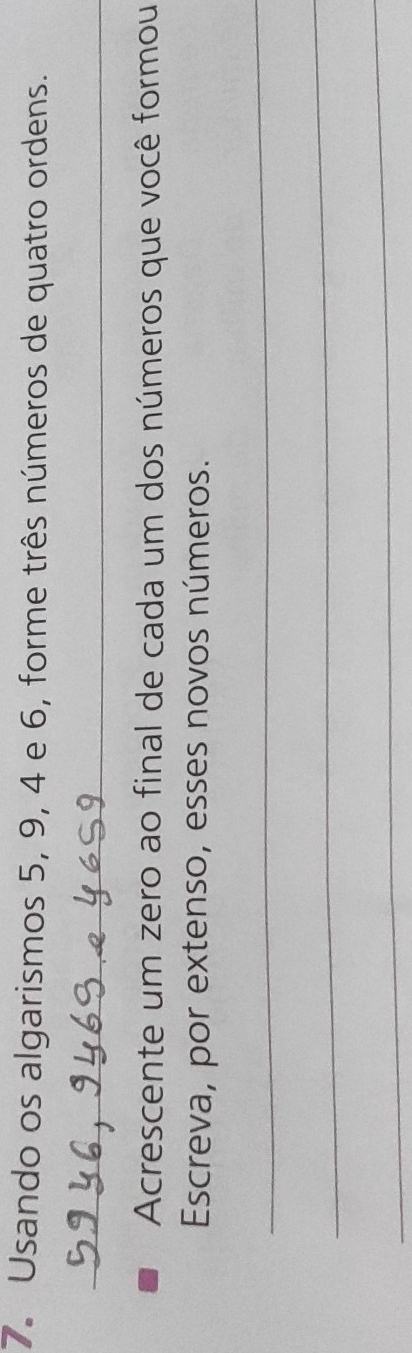 7. Usando os algarismos 5, 9, 4 e 6, forme três números de quatro ordens.
5946, 9465 e 4659
Acrescente um zero ao final de cada um dos números que você formou
Escreva, por extenso, esses novos números.